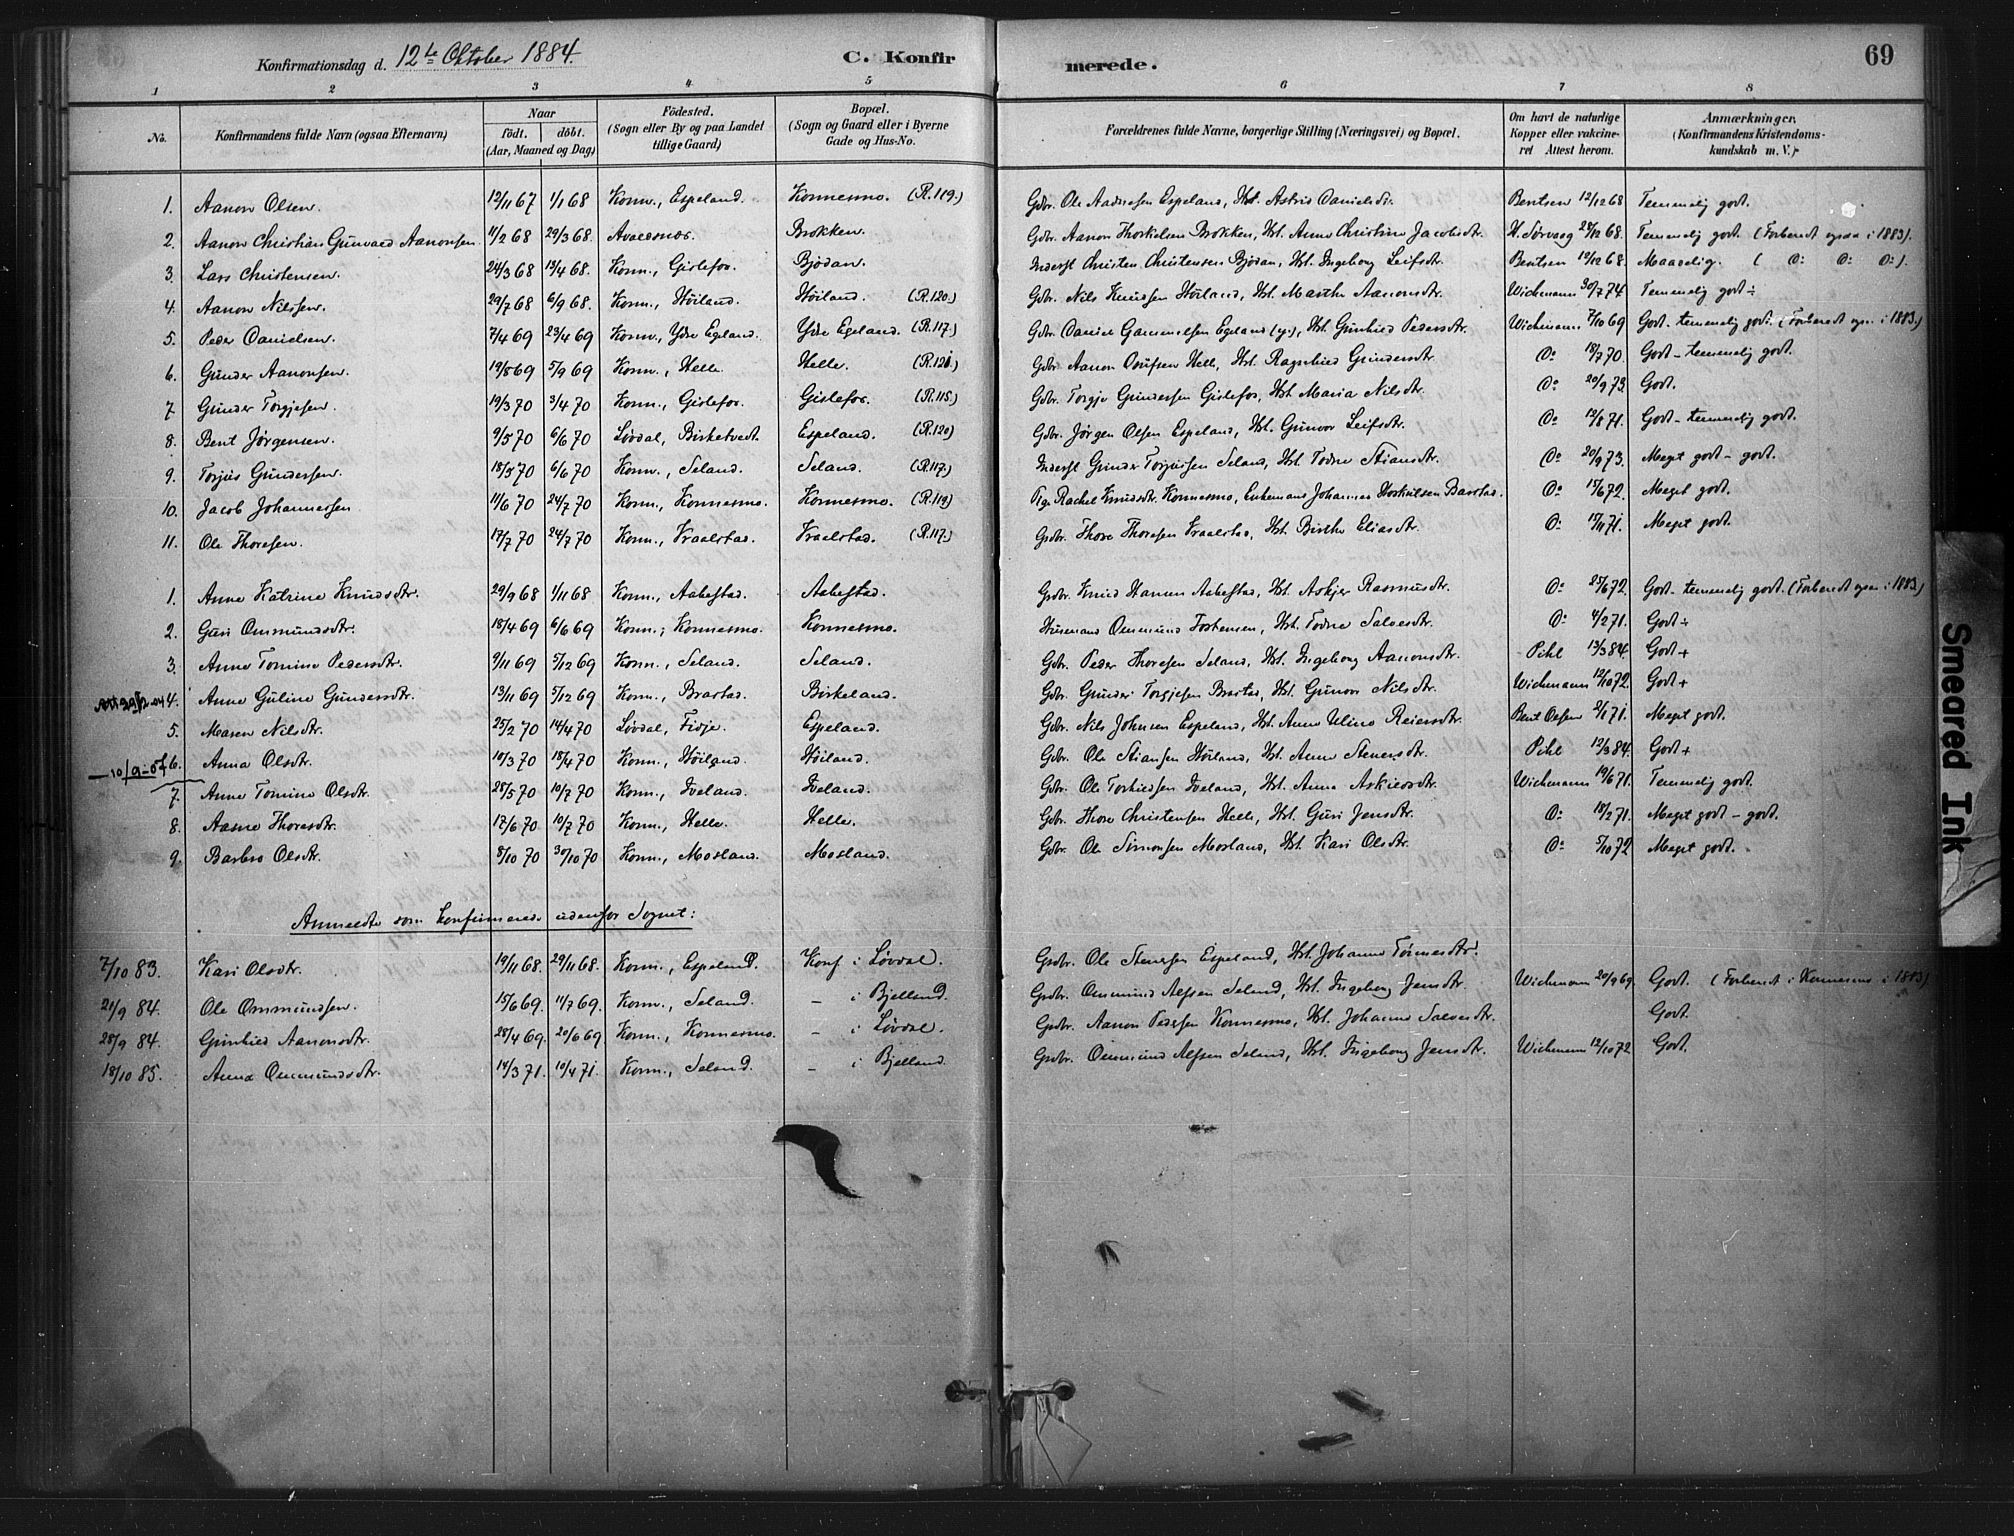 Konfirmationsdag d. 12te Oktober 1884. C. Konfirmerede. 69
1 2 3 4 5 6 7 8
No. Konfirmandens fulde Navn (ogsaa Efternavn) Naar födt. döbt. (Aar, Maaned og Dag) Födested. (Sogn eller By og paa Landet tillige Gaard) Bopæl. (Sogn og Gaard eller i Byerne Gade og Hus-No. Forældrenes fulde Navne, borgerlige Stilling (Næringsvei) og Bopæl. Om havt de naturlige Kopper eller vakcineret Attest herom. Anmærkninger. (Konfirmandens Kristendomskundskab m. V.)
1. Aanon Olsen. 12/11 67 1/1 68 Konm., Espeland. Konnesmo. (R.119.) Gdbr. Ole Aadnesen Espeland, Hst. Astrid Danielsdtr. Bentsen 12/12 68 Temmelig godt.
2. Aanon Christian Gunvald Aanonsen 11/2 68 29/3 68. Avaldsnes. Brokken. Gdbr. Aanon Thorkelsen Brokken, Hst. Anne Christine Jacobsdtr. H. Sørvaag 28/12 68. Temmelig godt. (Forberedt ogsaa i 1883).
3. Lars Christensen. 24/3 68 13/4 68. Konm., Gislefos. Bjödan. Inderst Christen Christensen Bjödan, Hst. Ingeborg Leifsdtr. Bentsen 12/12 68. Maadelig. ( do do do ).
4. Aanon Nilssen. 29/7 68 6/9 68. Konm., Höiland. Höiland. (R.120.) Gdbr. Nils Knudsen Höiland, Hst. Marthe Aanonsdtr. Wichmann 30/7 74 Temmelig godt ÷
5. Peder Danielsen. 7/4 69 23/4 69 Konm., Ydre Egeland. Ydre Egeland. (R.117.) Gdbr. Daniel Gammelsen Egeland (y.), Hst. Gunhild Pedersdtr. Wichmann 7/10 69 Godt - temmelig godt. (Forberedt ogs. i 1883.)
6. Gunder Aanonsen. 19/8 69 5/9 69 Konm., Helle. Helle. (R.121.) Gdbr. Aanon Olufsen Helle, Hst. Ragnhild Gundersdtr. do 18/7 70. Godt - temmelig godt.
7. Gunder Torgjesen. 19/3 70 3/4 70 Konm., Gislefos. Gislefos. (R.115.) Gdbr. Torgje Gundersen Gislefos, Hst. Maria Nilsdtr. do 20/9 73. Godt.
8. Bent Jörgensen. 9/5 70 6/6 70 Lövdal, Birketvedt. Espeland. (R.120) Gdbr. Jörgen Olsen Espeland, Hst. Gunvor Leifsdtr. do 12/8 71. Godt - temmelig godt.
9. Torjus Gundersen. 18/5 70 6/6 70 Konm., Seland. Seland. (R.117.) Inderst Gunder Torjussen Seland, Hst. Todne Stiansdtr. do 20/9 73. Meget godt - godt.
10. Jacob Johannessen 11/6 70 24/7 70 Konm., Konnesmo. Konnesmo. (R.119) Pige Rachel Knudsdtr. Konnesmo, Enkemand Johannes Horkulsen Barstad. do 15/6 72. Meget godt.
11. Ole Thoresen. 17/7 70 24/7 70 Konm., Vraalstad. Vraalstad. (R.117.) Gdbr. Thore Thoresen Vraalstad, Hst. Birthe Eliasdtr. do 15/11 71. Meget godt.
1. Anne Katrine Knudsdtr. 29/9 68 1/11 68 Konm., Aabestad. Aabestad. Gdbr. Knud Hansen Aabestad, Hst. Askjer Rasmusdtr. do 25/6 72. Godt - temmelig godt. (Forberedt ogsaa i 1883)
2. Guri Ommundsdtr. 18/4 69 6/6 69 Konm., Konnesmo. Konnesmo. Husmand Ommund Tostensen, Hst. Todne Salvesdtr. do 4/2 71. Godt ÷
3. Anne Tomine Pedersdtr. 9/11 69 5/12 69 Konm., Seland. Seland. Gdbr. Peder Thoresen Seland, Hst. Ingeborg Aanonsdtr. Pihl 13/3 84. Godt +
4. Anne Guline Gundersdtr. 13/11 69 5/12 69 Konm., Brastad. Birkeland. Gdbr. Gunder Torgjesen Brastad, Hst. Gunvor Nilsdtr. Wichmann 12/10 72. Godt +
5. Maren Nilsdtr. 25/2 70 14/4 70 Lövdal, Fidje. Espeland. Gdbr. Nils Johnsen Espeland, Hst. Anne Uline Reiersdtr. Bent Olsen 2/1 71. Meget godt.
10/9-07 6. Anna Olsdtr. 10/3 70 18/4 70 Konm., Höiland. Höiland. Gdbr. Ole Stiansen Höiland, Hst. Anne Stenersdtr. Pihl 12/3 84. Godt +
7. Anne Tomine Olsdtr. 28/5 70 10/7 70 Konm., Iveland. Iveland. Gdbr. Ole Torkildsen Iveland, Hst. Anna Askildsdtr. Wichmann 19/6 71. Temmelig godt.
8. Aasne Thoresdtr. 17/6 70 10/7 70 Konm., Helle. Helle. Gdbr. Thore Christensen Helle, Hst. Guri Jensdtr. do 18/2 71. Meget godt - godt.
9. Barbro Olsdtr. 8/10 70 30/10 70 Konm., Mosland. Mosland. Gdbr. Ole Simonsen Mosland, Hst. Kari Olsdtr. do 5/10 72 Meget godt.
Anmeldte som konfirmerede udenfor Sognet:
7/10 83. Kari Olsdtr. 19/11 68. 29/11 68. Konm., Espeland. Konf. i Lövdal. Gdbr. Ole Stensen Espeland, Hst. Johanne Tönnesdtr.
21/9 84. Ole Ommundsen. 15/6 69. 11/7 69. Konm., Seland. - i Bjelland. Gdbr. Ommund Alfsen Seland, Hst. Ingeborg Jensdtr. Wichmann 20/9 69. Godt. (Forberedt i Konnesmo i 1883)
28/9 84. Gunhild Aanonsdtr. 28/4 69. 20/6 69. Konm., Konnesmo. - i Lövdal. Gdbr. Aanon Pedersen Konnesmo, Hst. Johanne Salvesdtr. Godt.
18/10 85. Anna Ommundsdtr. 14/3 71. 10/4 71. Konm., Seland. - i Bjelland. Gdbr. Ommund Alfsen Seland, Hst. Ingeborg Jensdtr. Wichmann 12/10 72 Godt.
Smeared Ink